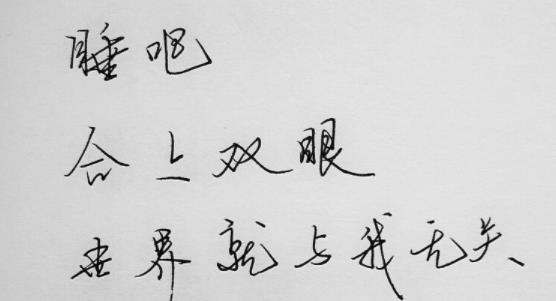 睡吧
合上双眼
世界就与我无关、